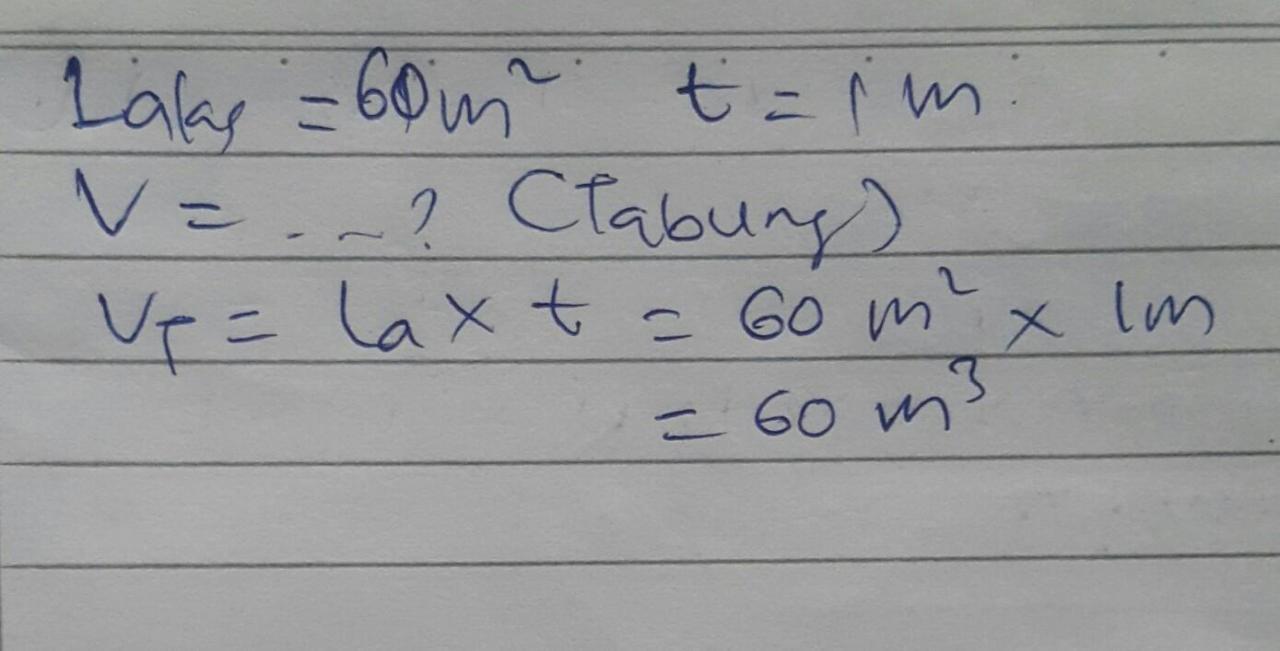 Lalas = 60 m² t = 1 m
V = ...? (Tabung)
V_T = La x t = 60 m² x 1m
= 60 m³